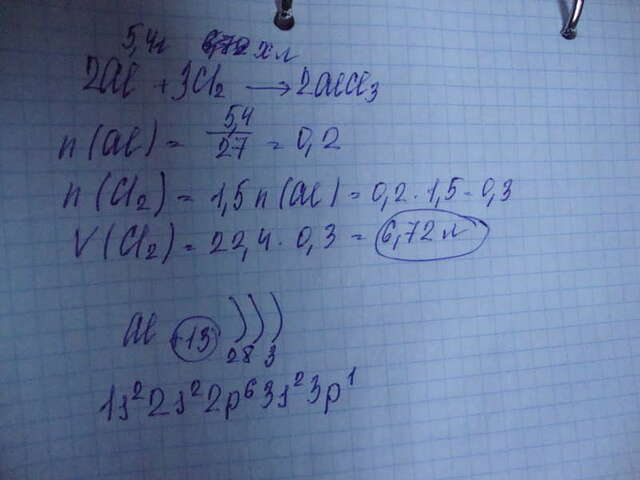 5,4г x л
2Al + 3Cl₂ → 2AlCl₃
n(Al) = 5,4/27 = 0,2
n(Cl₂) = 1,5n(Al) = 0,2·1,5 = 0,3
V(Cl₂) = 22,4·0,3 = 6,72л
Al +13 ) ) )
2 8 3
1s²2s²2p⁶3s²3p¹